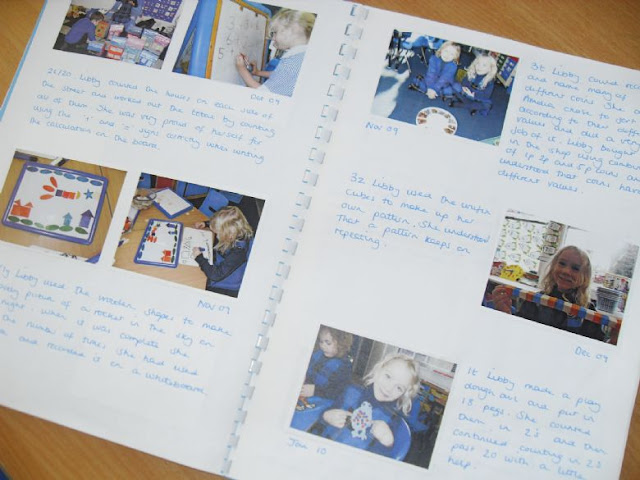 2i/2o. Libby counted the houses on each side of
the street and worked out the totals by counting
all of them. She was very proud of herself for
using the '+' and '=' signs correctly when writing
the calculation on the board.
Dec 09
Libby used the wooden shapes to make
picture of a rocket in the sky on
night, when it was complete she
the number of times she had used
and recorded it on a whiteboard.
Nov 09
Libby could
and name many of
different coins. She
Amelia chose to
according to their
values and did a very
job of it. Libby bought
in the shop using
of 1p 2p and 5p coins and
understood that coins have
different values.
Nov 09
Libby used the unifix
cubes to make up her
own pattern. She understood
that a pattern keeps on
repeating.
Dec 09
Libby made a play
dough owl and put in
18 pegs. She counted
them in 2's and then
continued counting in 2's
past 20 with a little
help.
Jan 10